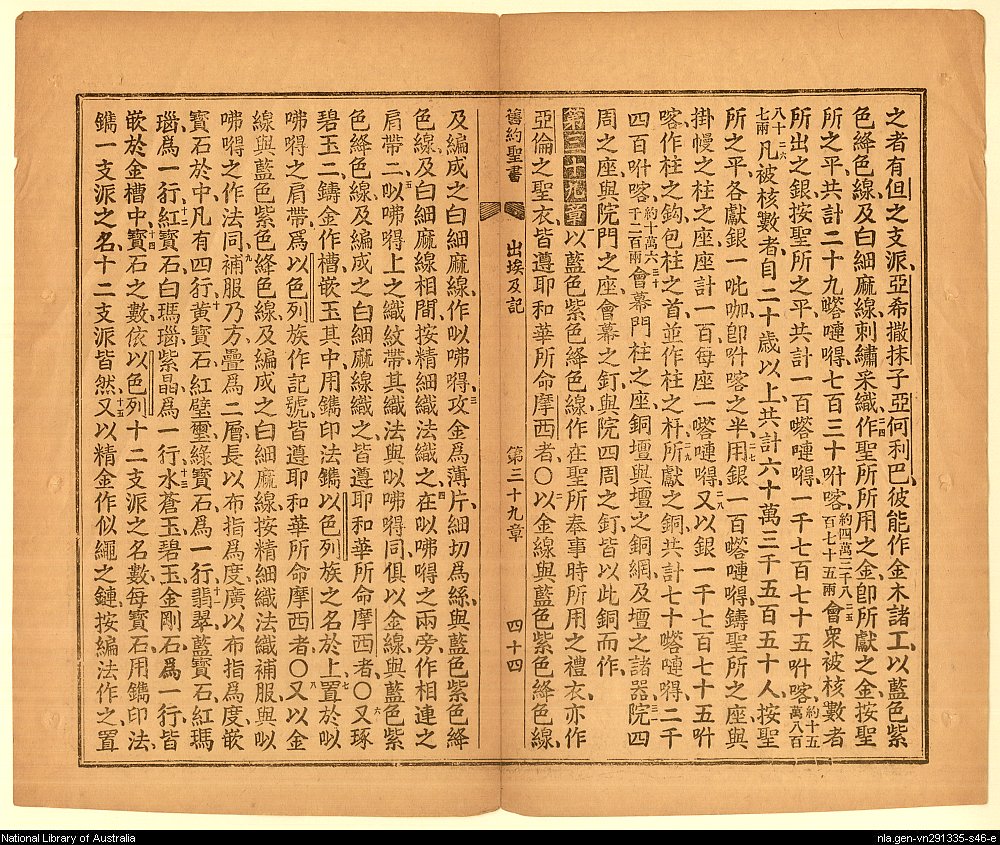 之者有但之支派亞希撒抹子亞何利巴彼能作金木諸工以藍色紫
色絳色線及白細麻線刺繡采織作聖所所用之金卽所獻之金按聖
所之平共計二十九㗳嗹嘚七百三十吽喀約四萬三千八百七十五兩會衆被核數者
所出之銀按聖所之平共計一百㗳嗹嘚一千七百七十五吽喀約十五萬八百
八十七兩凡被核數者自二十歲以上共計六十萬三千五百五十人按聖
所之平各獻銀一吡咖卽吽喀之半用銀一百㗳嗹嘚鑄聖所之座與
掛幔之柱之座座計一百每座一㗳嗹嘚又以銀一千七百七十五吽
喀作柱之鈎包柱之首並作柱之杆所獻之銅共計七十㗳嗹嘚二千
四百吽喀約十萬六千二百兩會幕門柱之座銅壇與壇之銅網及壇之諸器院四
周之座與院門之座會幕之釘與院四周之釘皆以此銅而作
第三十九章以藍色紫色絳色線作在聖所奉事時所用之禮衣亦作
亞倫之聖衣皆遵耶和華所命摩西者〇以金線與藍色紫色絳色線
舊約聖書 出埃及記 第三十九章 四十四
及編成之白細麻線作以咈嘚攻金爲薄片細切爲絲與藍色紫色絳
色線及白細麻線相間按精細織法織之在以咈嘚之兩旁作相連之
肩帶二以咈嘚上之織紋帶其織法與以咈嘚同俱以金線與藍色紫
色絳色線及編成之白細麻線織之皆遵耶和華所命摩西者〇又琢
碧玉二鑄金作槽嵌玉其中用鐫印法鐫以色列族之名於上置於以
咈嘚之肩帶爲以色列族作記號皆遵耶和華所命摩西者〇又以金
線與藍色紫色絳色線及編成之白細麻線按精細織法織補服與以
咈嘚之作法同補服乃方疊爲二層長以布指爲度廣以布指爲度嵌
寶石於中凡有四行黃寶石紅璧璽綠寶石爲一行翡翠藍寶石紅瑪
瑙爲一行紅寶石白瑪瑙紫晶爲一行水蒼玉碧玉金剛石爲一行皆
嵌於金槽中寶石之數依以色列十二支派之名數每寶石用鐫印法
鐫一支派之名十二支派皆然又以精金作似繩之鏈按編法作之置
National Library of Australia
nla.gen-vn291335-s46-e